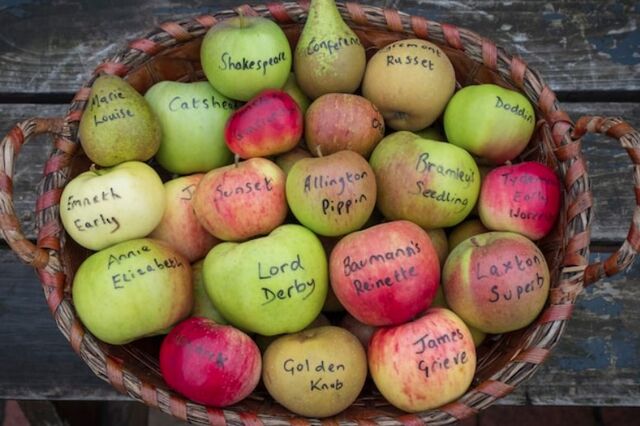 Shakespeare
Conference
Russet
Marie
Louise
Catshead
Doddin
Bramley's
Seedling
Allington
Pippin
Sunset
Emneth
Early
Lord
Derby
Baumann's
Reinette
Laxton
Superb
Annie
Elizabeth
Golden
Knob
James
Grieve